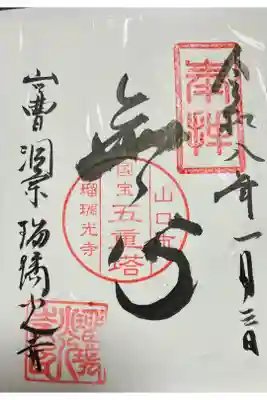 奉拝
令和八年一月三日
無
山口市
国宝
五重塔
瑠璃光寺
山曹洞宗 瑠璃光寺